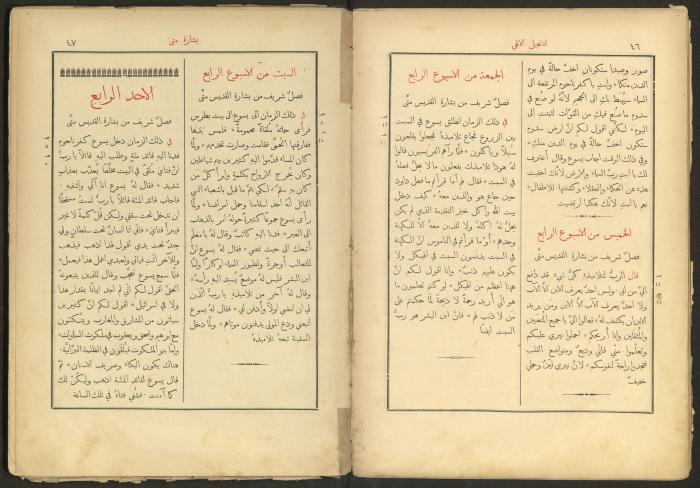 ٤٦
الانجيل الالهي
صور وصيدا ستكونان اخفّ حالةً في يوم
الدين منكما * وانتِ يا كفرناحوم المرتفعة الى
السماء ستهبط بكِ الى الجحيم لانهُ لو صُنع في
سدوم ما صُنع فيكِ من القوّات لثبتت الى
اليوم * لكنّي اقول لكم انّ ارض سدوم
ستكون اخفّ حالةً في يوم الدين منكِ *
وفي ذلك الوقت اجاب يسوع وقال اعترف
لك يا ابتِ ربّ السماء والارض لانك اخفيت
هذه عن الحكماء والعقلاء وكشفتها للاطفال *
نعم يا ابتِ لأنك هكذا ارتضيت
الخميس من الاسبوع الرابع
فصلٌ شريف من بشارة القديس متّى
قال الربّ لتلاميذهِ كلّ شيء قد دُفع
اليّ من ابي * وليس احدٌ يعرف الابن الّا الآب
ولا احدٌ يعرف الآب الّا الابن ومَن يريد
الابن ان يكشف لهُ * تعالوا اليّ يا جميع المتعبين
والمثقلين وانا أُريحكم * احملوا نيري عليكم
وتعلّموا منّي فاني وديعٌ ومتواضع القلب
فتجدوا راحةً لنفوسكم * لانّ نيري ليّنٌ وحملي
خفيفٌ
الجمعة من الاسبوع الرابع
فصلٌ شريف من بشارة القديس متّى
في ذلك الزمان انطلق يسوع في السبت
بين الزروع فجاع تلاميذهُ فجعلوا يقلعون
سنبلًا ويأكلون * فلمّا رآهم الفريسيون قالوا
لهُ هوذا تلاميذك يفعلون ما لا يحلّ فعلهُ
في السبت * فقال لهم أما قرأتم ما فعل داود
حين جاع هو والذين معهُ * كيف دخل
بيت الله واكل خبز التقدمة الذي لم يكن
يحلّ لهُ اكلهُ ولا للذين معهُ الّا للكهنة
وحدهم * أوَ ما قرأتم في الناموس انّ الكهنة
في السبت يدنّسون السبت في الهيكل ولا
يكون عليهم ذنبٌ * وانا اقول لكم انّ
ههنا اعظم من الهيكل * لو كنتم تعلمون ما
هو اني أُريد رحمةً لا ذبيحةً لما حكمتم على
من لا ذنب لهم * فانّ ابن البشر هو ربّ
السبت ايضًا
بشارة متّى
٤٧
السبت من الاسبوع الرابع
فصلٌ شريف من بشارة القديس متّى
في ذلك الزمان اتى يسوع الى بيت بطرس
فرأى حماتهُ ملقاةً محمومةً * فلمس يدها
ففارقتها الحُمّى فقامت وصارت تخدمهم * ولمّا
كان المساء قدّموا اليهِ كثيرين بهم شياطين
وكان يخرج الارواح بكلمةٍ وابرأ كلّ مَن
كان بهِ سوءٌ * لكي يتمّ ما قيل باشعياء النبي
القائل انّهُ اخذ اسقامنا وحمل امراضنا * ولمّا
رأى يسوع جموعًا كثيرةً حولهُ امر بالذهاب
الى العبر * فدنا اليهِ كاتبٌ وقال لهُ يا معلّم
أتبعك الى حيث تمضي * فقال لهُ يسوع انّ
للثعالب أوجرةً ولطيور السماء اوكارًا وامّا
ابن البشر فليس لهُ موضعٌ يُسند اليهِ رأسهُ *
وقال لهُ آخر من تلاميذهِ يا ربّ ائذن
لي ان امضي اولًا وأدفن ابي * فقال لهُ يسوع
اتبعني ودع الموتى يدفنون موتاهم * ولمّا دخل
السفينة تبعهُ تلاميذهُ
الاحد الرابع
فصلٌ شريف من بشارة القديس متّى
في ذلك الزمان دخل يسوع كفرناحوم
فدنا اليهِ قائد مئةٍ وطلب اليهِ قائلًا يا ربّ
انّ فتاي ملقًى في البيت مخلّعًا يُعذَّب بعذابٍ
شديد * فقال لهُ يسوع انا آتي واشفيهِ *
فاجاب قائد المئة قائلًا يا ربّ لستُ مستحقًّا
ان تدخل تحت سقفي ولكن قل كلمةً لا غير
فيبرأ فتاي * فاني انا انسانٌ تحت سلطانٍ ولي
جندٌ تحت يدي اقول لهذا اذهب فيذهب
وللآخر ائتِ فيأتي ولعبدي اعمل هذا فيعمل *
فلمّا سمع يسوع تعجّب وقال للذين يتبعونهُ
الحقّ اقول لكم اني لم اجد ايمانًا بمقدار هذا
ولا في اسرائيل * اقول لكم انّ كثيرين
سيأتون من المشارق والمغارب ويتّكئون
مع ابرهيم واسحق ويعقوب في ملكوت السماوات *
وامّا بنو الملكوت فيُلقَون في الظلمة البرّانيّة.
هناك يكون البكاء وصريف الاسنان * ثمّ
قال يسوع لقائد المئة اذهب وليكن لك
كما آمنت. فشُفي فتاهُ في تلك الساعة